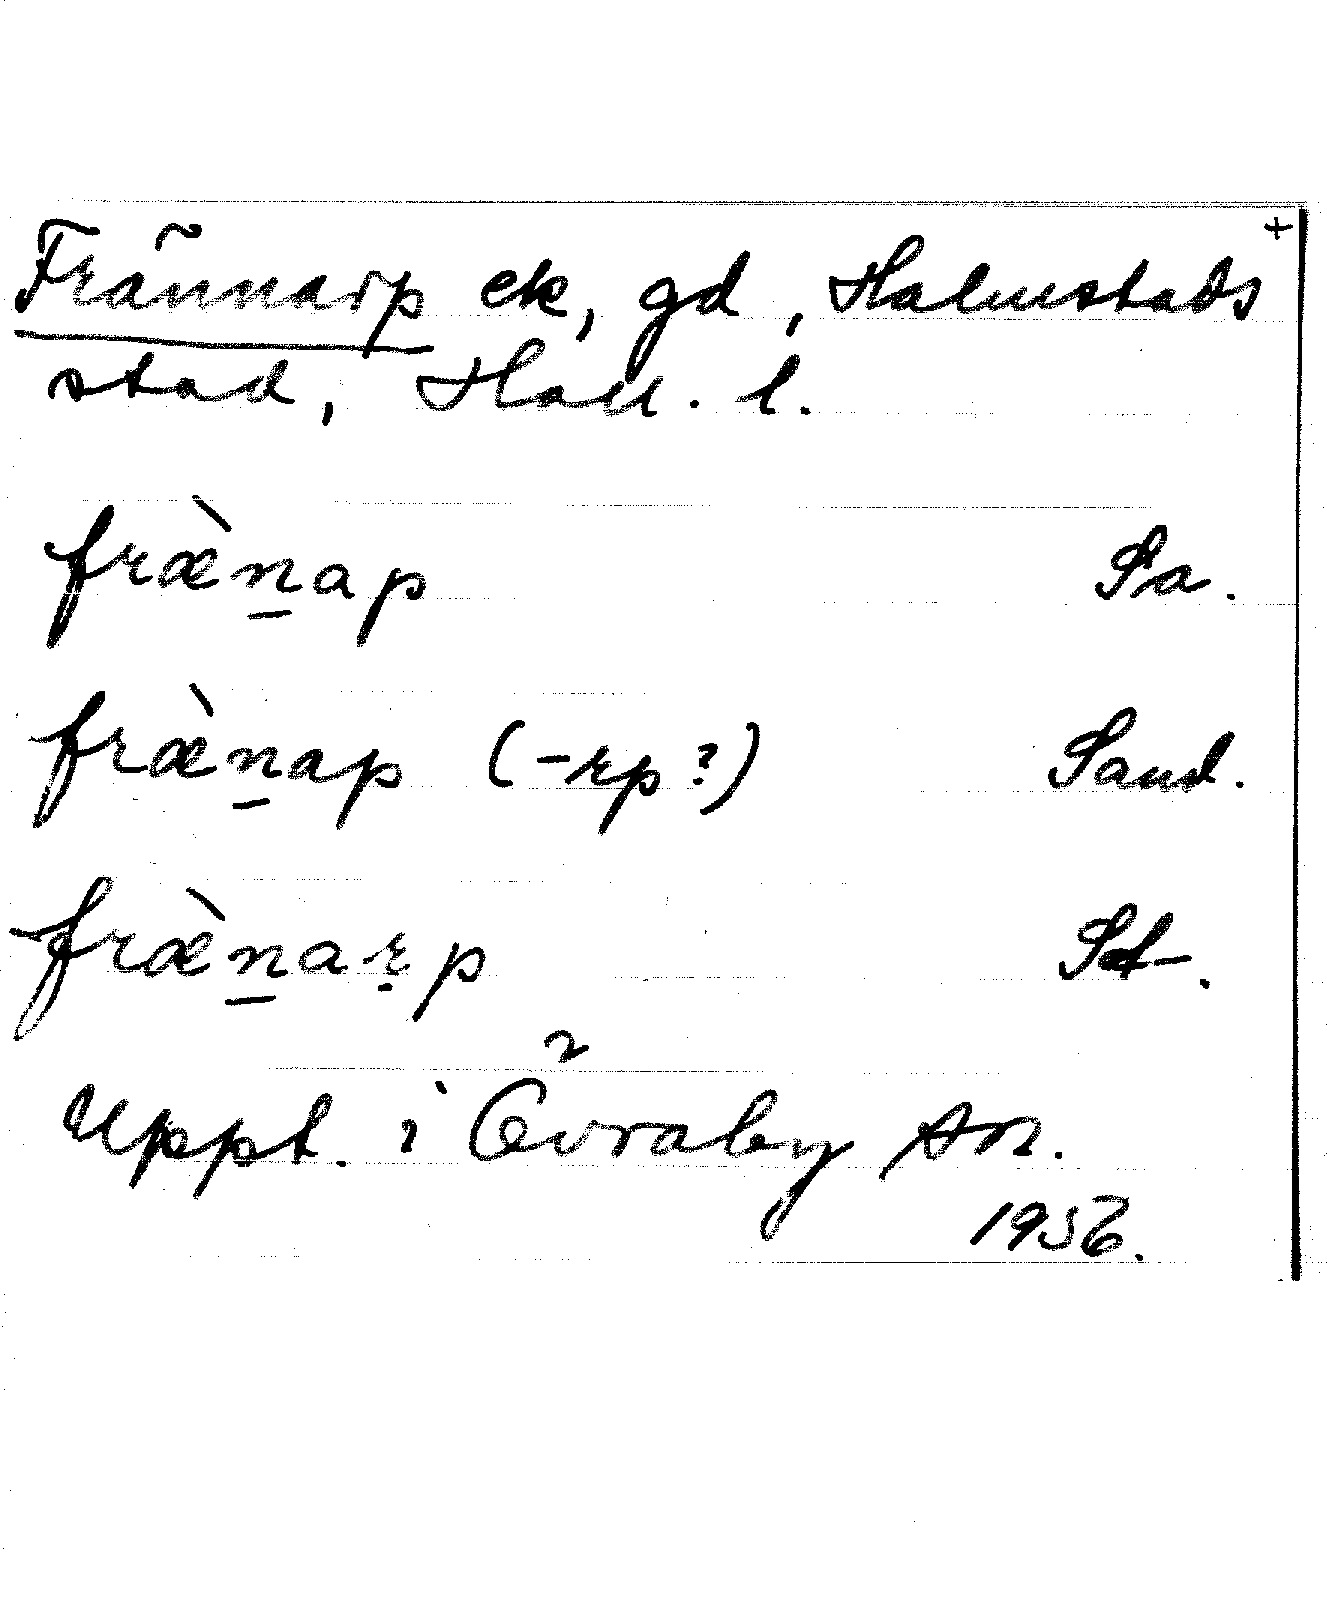 +
Frännarp ek, gd, Halmstads
stad, Hall. l.
fræ̀n̲ap Sa.
fræ̀n̲ap (-rp?) Sand.
fræ̀n̲aṛp St.
Uppt. i Övraby sn.
1956.